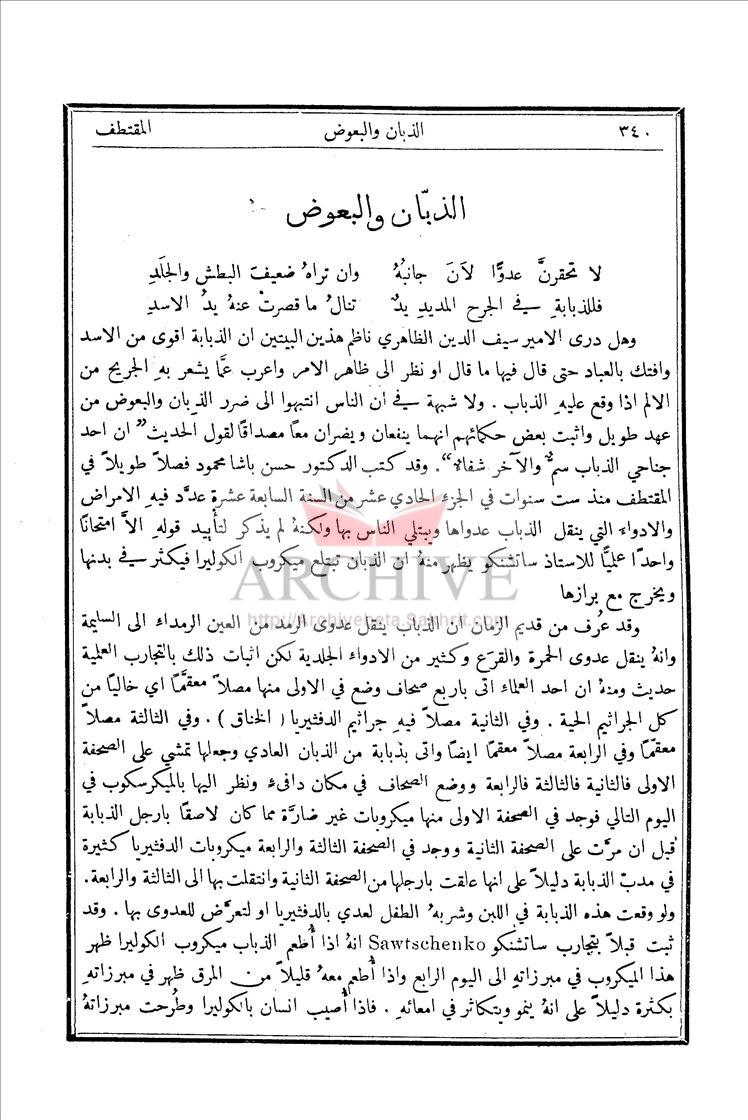 ٣٤٠ الذبان والبعوض المقتطف
الذبّان والبعوض
لا تحقرنَّ عدوًّا لانَ جانبُهُ وان تراهُ ضعيف البطش والجلَدِ
فللذبابةِ في الجرح المديدِ يدٌ تنالُ ما قصرتْ عنهُ يدُ الاسدِ
وهل درى الامير سيف الدين الظاهري ناظم هذين البيتين ان الذبابة اقوى من الاسد
وافتك بالعباد حتى قال فيها ما قال او نظر الى ظاهر الامر واعرب عمَّا يشعر بهِ الجريح من
الالم اذا وقع عليهِ الذباب . ولا شبهة في ان الناس انتبهوا الى ضرر الذبان والبعوض من
عهد طويل واثبت بعض حكمائهم انهما ينفعان ويضران معًا مصداقًا لقول الحديث ”ان احد
جناحي الذباب سمٌّ والآخر شفاءٌ“. وقد كتب الدكتور حسن باشا محمود فصلاً طويلاً في
المقتطف منذ ست سنوات في الجزء الحادي عشر من السنة السابعة عشرة عدَّد فيهِ الامراض
والادواء التي ينقل الذباب عدواها ويبتلي الناس بها ولكنهُ لم يذكر لتأييد قولهِ الاَّ امتحانًا
واحدًا عمليًّا للاستاذ ساتشنكو يظهر منهُ ان الذبان تبتلع ميكروب الكوليرا فيكثر في بدنها
ويخرج مع برازها
ARCHIVE
http://Archivebeta.Sakhrit.com
وقد عُرف من قديم الزمان ان الذباب ينقل عدوى الرمد من العين الرمداء الى السليمة
وانهُ ينقل عدوى الحمرة والقرَع وكثير من الادواء الجلدية لكن اثبات ذلك بالتجارب العلمية
حديث ومنهُ ان احد العلماء اتى باربع صحاف وضع في الاولى منها مصلاً معقَّمًا اي خاليًا من
كل الجراثيم الحية . وفي الثانية مصلاً فيهِ جراثيم الدفثيريا ( الخناق ) . وفي الثالثة مصلاً
معقّمًا وفي الرابعة مصلاً معقمًا ايضًا واتى بذبابة من الذبان العادي وجعلها تمشي على الصحفة
الاولى فالثانية فالثالثة فالرابعة ووضع الصحاف في مكان دافىء ونظر اليها بالميكرسكوب في
اليوم التالي فوجد في الصحفة الاولى منها ميكروبات غير ضارَّة مما كان لاصقًا بارجل الذبابة
قبل ان مرَّت على الصحفة الثانية ووجد في الصحفة الثالثة والرابعة ميكروبات الدفثيريا كثيرة
في مدبّ الذبابة دليلاً على انها علقت بارجلها من الصحفة الثانية وانتقلت بها الى الثالثة والرابعة.
ولو وقعت هذه الذبابة في اللبن وشربهُ الطفل لعدي بالدفثيريا او لتعرَّض للعدوى بها . وقد
ثبت قبلاً بتجارب ساتشنكو Sawtschenko انهُ اذا أُطعم الذباب ميكروب الكوليرا ظهر
هذا الميكروب في مبرزاتهِ الى اليوم الرابع واذا أُطعم معهُ قليلاً من المرق ظهر في مبرزاتهِ
بكثرة دليلاً على انهُ ينمو ويتكاثر في امعائهِ . فاذا أُصيب انسان بالكوليرا وطُرحت مبرزاتهُ